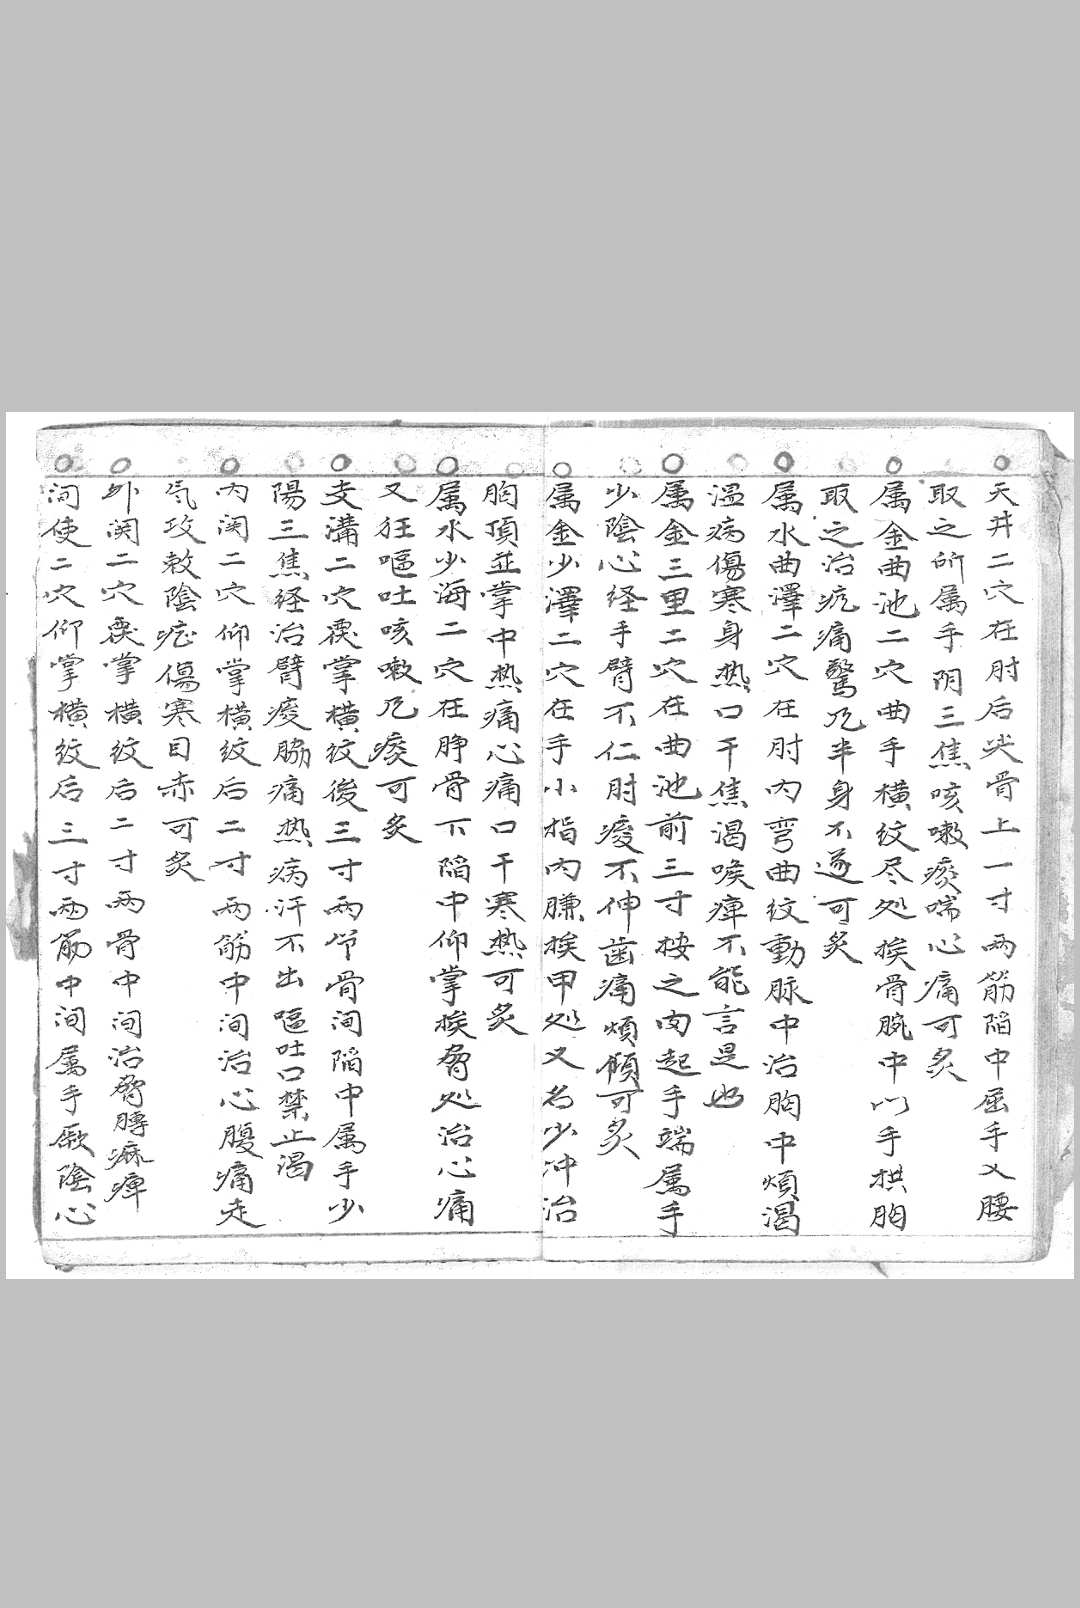 天井二穴在肘后尖骨上一寸两筋陷中屈手乂腰
取之所属手阴三焦咳嗽痰喘心痛可炙
属金曲池二穴曲手横纹尽处挨骨腕中以手拱胸
取之治疣痛驚及半身不遂可炙
属水曲澤二穴在肘内弯曲纹動脉中治胸中煩渴
温病傷寒身热口干焦渴喉痺不能言是也
属金三里二穴在曲池前三寸按之肉起手端属手
少陰心经手臂不仁肘痠不伸歯痛煩可炙
属金少澤二穴在手小指内臁挨甲处又名少冲治
胸頂並掌中热痛心痛口干寒热可炙
属水少海二穴在睁骨下陷中仰掌挨脅处治心痛
又狂嘔吐咳嗽及痰可炙
支溝二穴覆掌横纹後三寸两骨间陷中属手少
陽三焦经治臂痠脇痛热病汗不出嘔吐口禁止渴
内関二穴仰掌横纹后二寸两筋中间治心腹痛走
气攻敕陰症傷寒目赤可炙
外関二穴覆掌横纹后二寸两骨中间治脅膊麻痺
间使二穴仰掌横纹后三寸两筋中间属手厥陰心